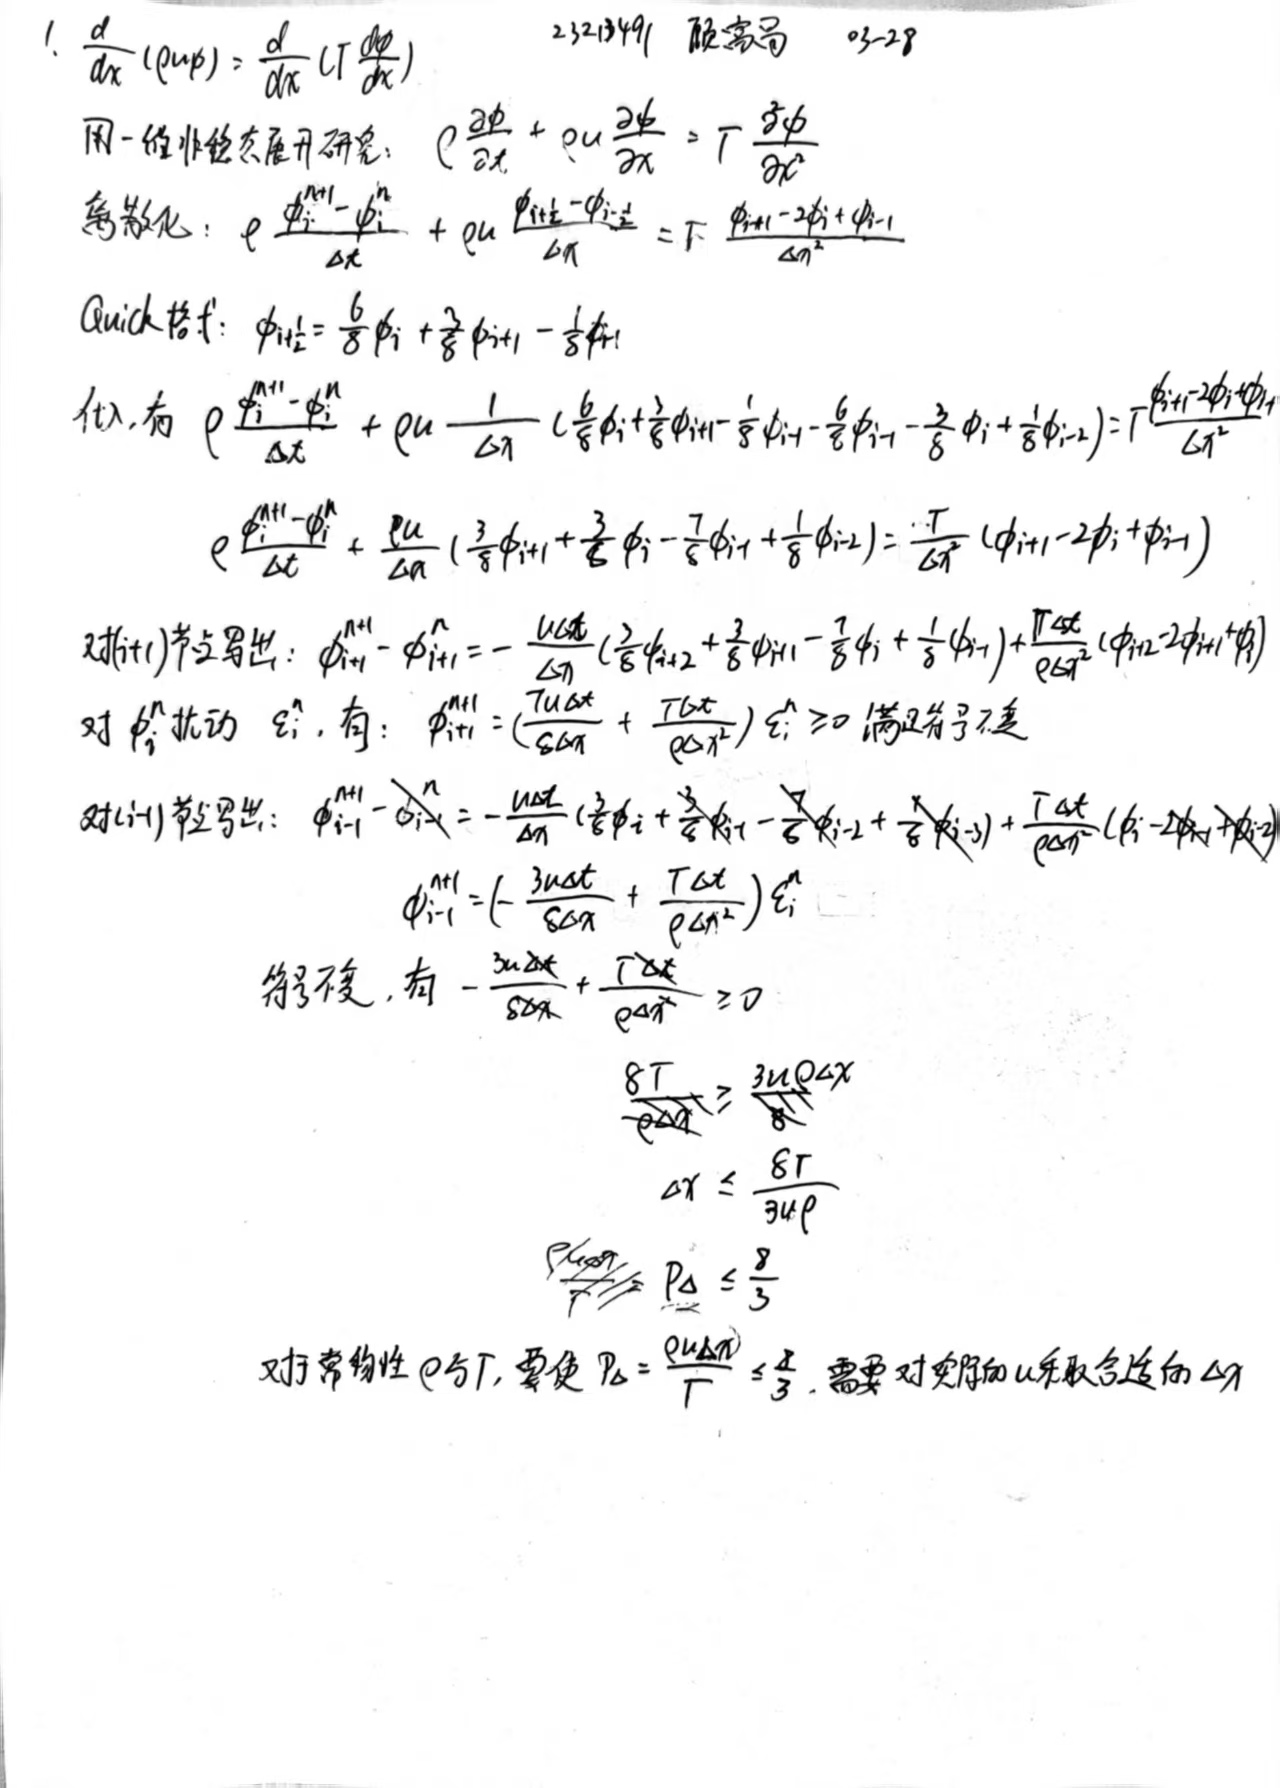 1. d/dx (ρuφ) = d/dx (Γ dφ/dx)
23213491 顾高局 03-28
用一维非稳态展开研究: ρ ∂φ/∂t + ρu ∂φ/∂x = Γ ∂²φ/∂x²
离散化: ρ (φᵢⁿ⁺¹ - φᵢⁿ)/Δt + ρu (φᵢ₊½ - φᵢ₋½)/Δx = Γ (φᵢ₊₁ - 2φᵢ + φᵢ₋₁)/Δx²
Quick格式: φᵢ₊½ = 6/8 φᵢ + 3/8 φᵢ₊₁ - 1/8 φᵢ₋₁
代入,有 ρ (φᵢⁿ⁺¹ - φᵢⁿ)/Δt + ρu 1/Δx (6/8 φᵢ + 3/8 φᵢ₊₁ - 1/8 φᵢ₋₁ - 6/8 φᵢ₋₁ - 3/8 φᵢ + 1/8 φᵢ₋₂) = Γ (φᵢ₊₁ - 2φᵢ + φᵢ₋₁)/Δx²
ρ (φᵢⁿ⁺¹ - φᵢⁿ)/Δt + ρu/Δx (3/8 φᵢ₊₁ + 3/8 φᵢ - 7/8 φᵢ₋₁ + 1/8 φᵢ₋₂) = Γ/Δx² (φᵢ₊₁ - 2φᵢ + φᵢ₋₁)
对(i+1)节点写出: φᵢ₊₁ⁿ⁺¹ - φᵢ₊₁ⁿ = - uΔt/Δx (3/8 φᵢ₊₂ + 3/8 φᵢ₊₁ - 7/8 φᵢ + 1/8 φᵢ₋₁) + ΓΔt/ρΔx² (φᵢ₊₂ - 2φᵢ₊₁ + φᵢ)
对 φᵢⁿ 扰动 εᵢⁿ, 有: φᵢ₊₁ⁿ⁺¹ = (7uΔt/8Δx + ΓΔt/ρΔx²) εᵢⁿ ≥ 0 满足符号不变
对(i-1)节点写出: φᵢ₋₁ⁿ⁺¹ - φᵢ₋₁ⁿ = - uΔt/Δx (3/8 φᵢ + 3/8 φᵢ₋₁ - 7/8 φᵢ₋₂ + 1/8 φᵢ₋₃) + ΓΔt/ρΔx² (φᵢ - 2φᵢ₋₁ + φᵢ₋₂)
φᵢ₋₁ⁿ⁺¹ = (- 3uΔt/8Δx + ΓΔt/ρΔx²) εᵢⁿ
符号不变,有 - 3uΔt/8Δx + ΓΔt/ρΔx² ≥ 0
8Γ/ρΔx ≥ 3uρΔx/8
Δx ≤ 8Γ/3uρ
ρuΔx/Γ = PΔ ≤ 8/3
对于常物性 ρ与Γ, 要使 PΔ = ρuΔx/Γ ≤ 8/3, 需要对实际的u采取合适的Δx